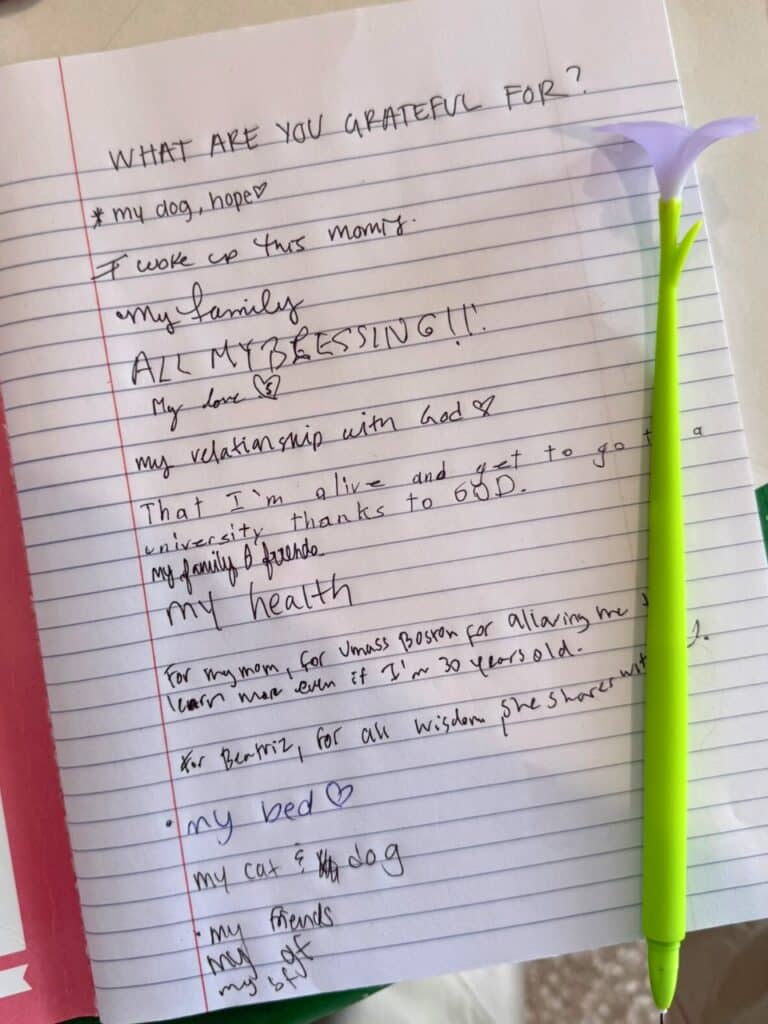 WHAT ARE YOU GRATEFUL FOR?
* my dog, hope♡
I woke up this morning.
My family
ALL MY BLESSING!!
My love
my relationship with God
That I'm alive and get to go a
university thanks to GOD.
my family & friends
my health
For my mom, for Umass Boston for allowing me
learn more even if I'm 30 years old.
For Beatriz, for all wisdom she shares
• my bed ♡
my cat & dog
• my friends
my gf
my bf